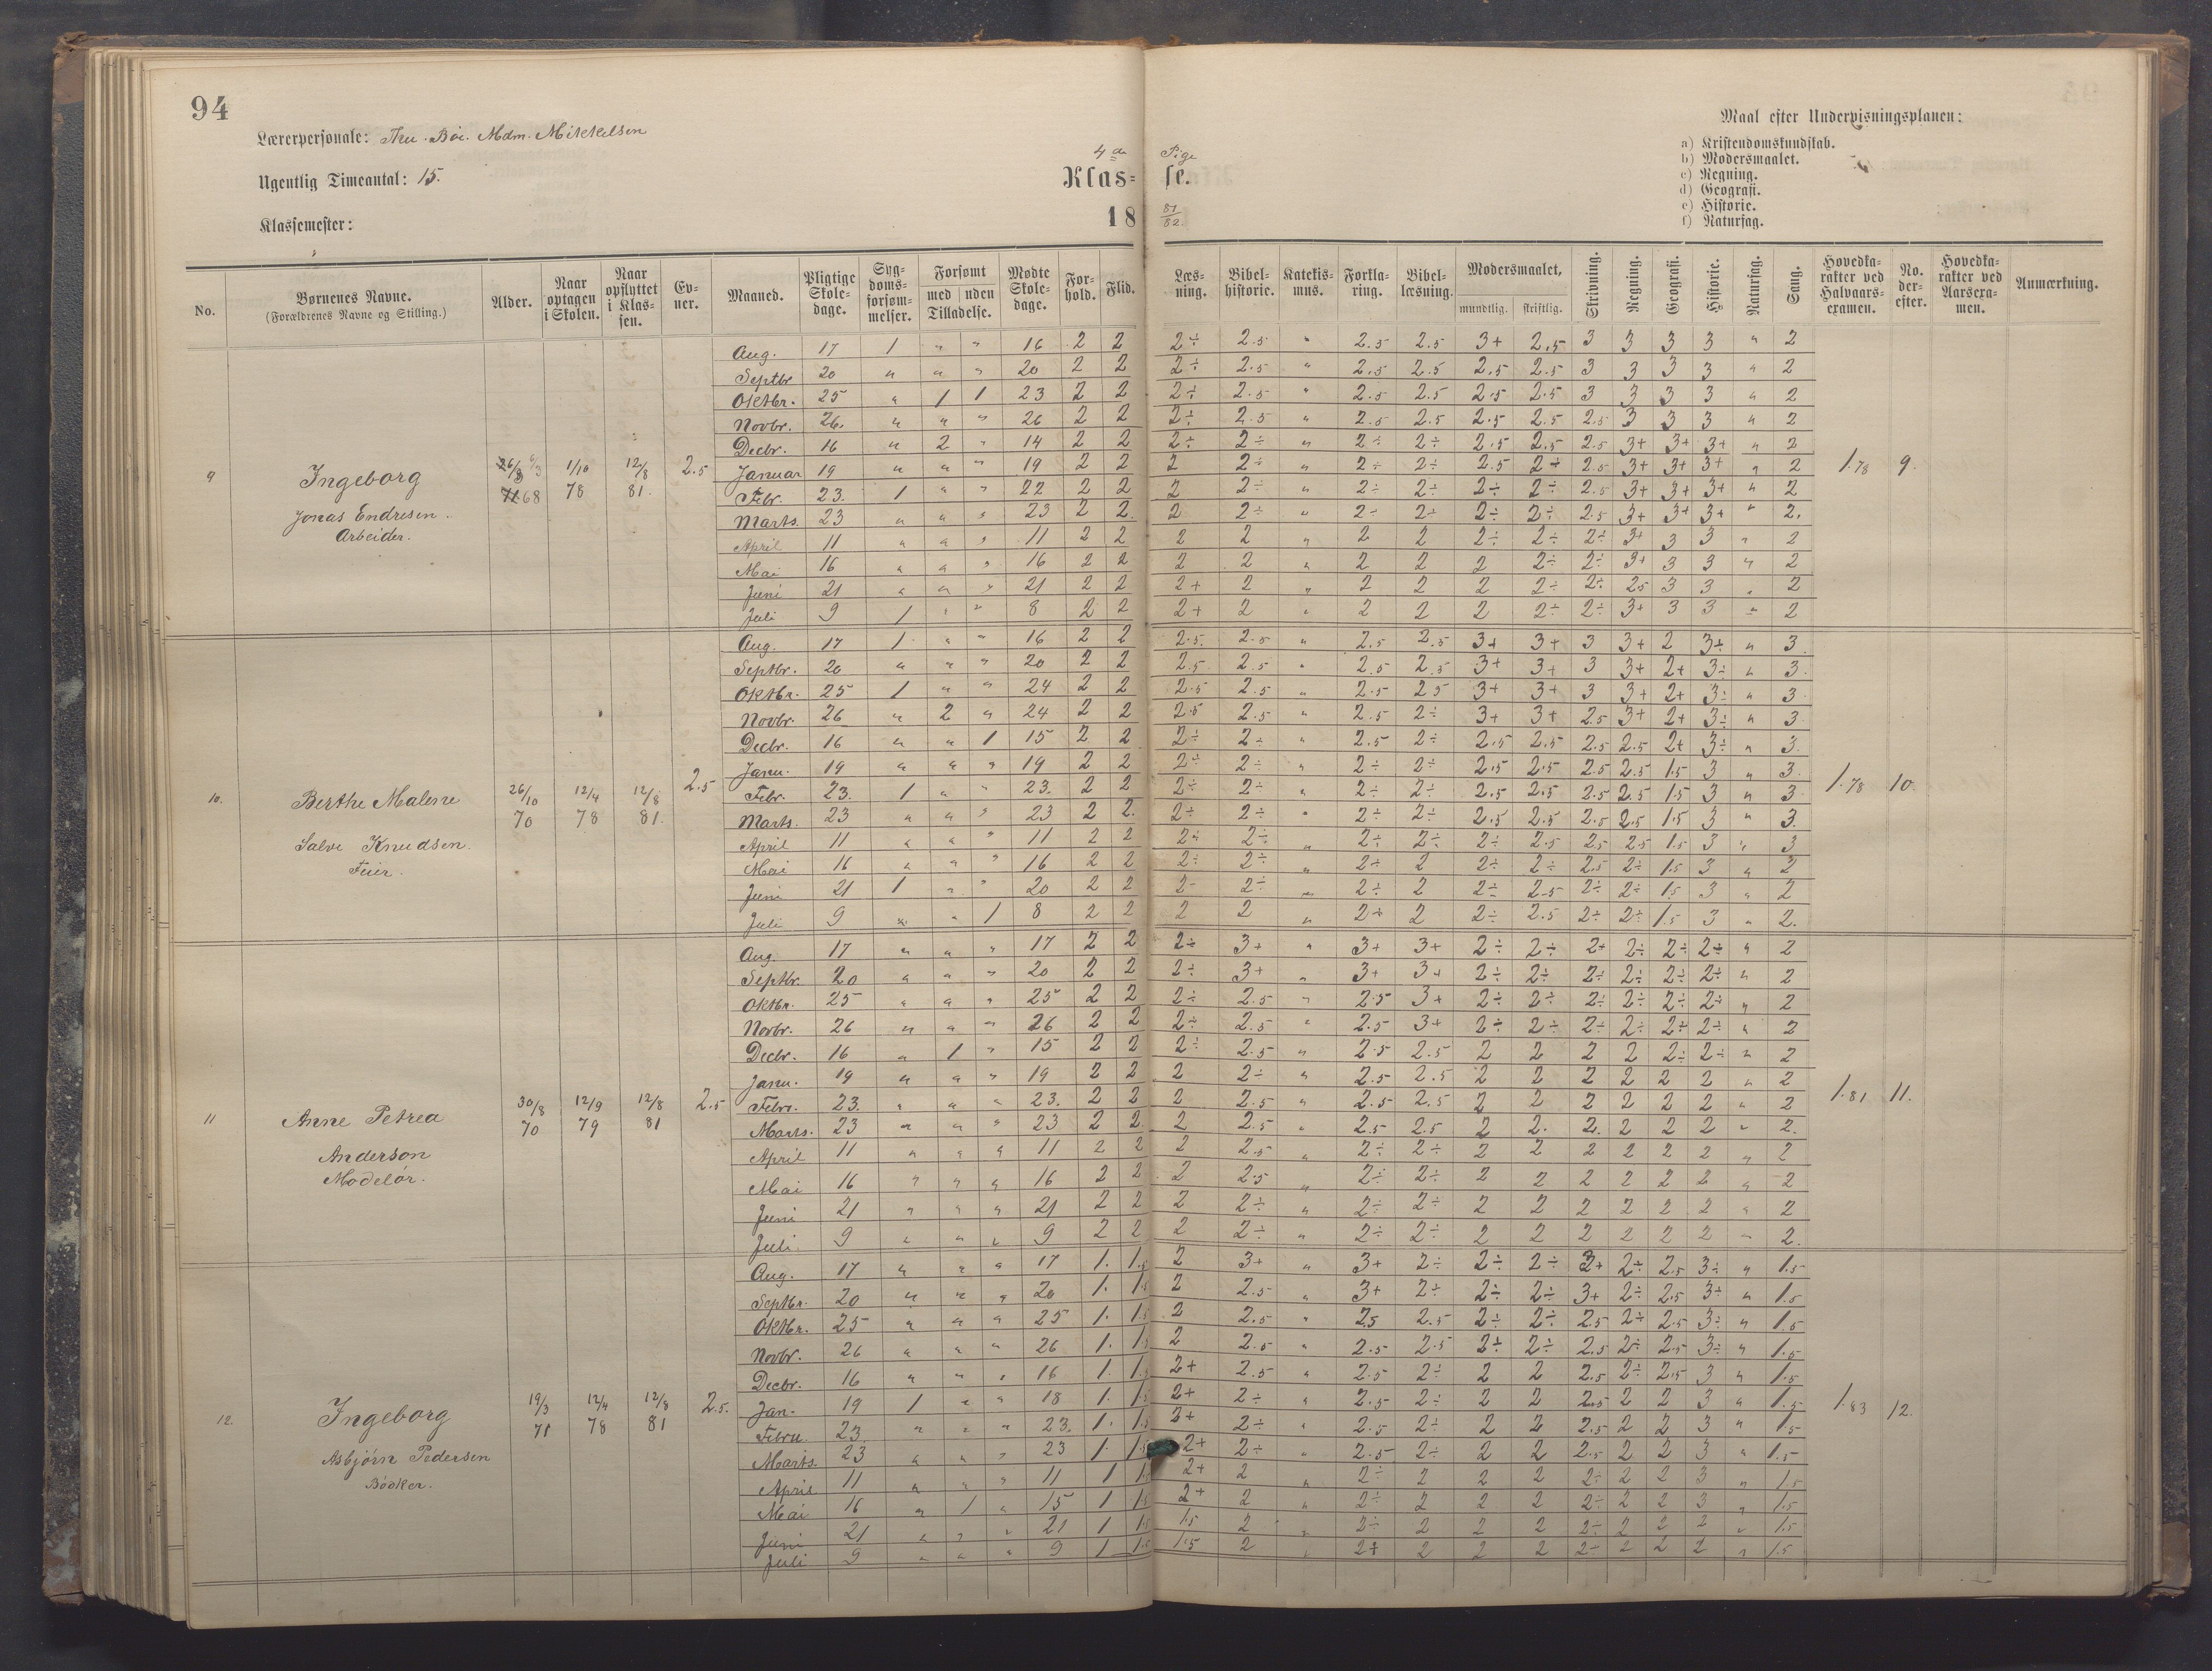 94
Lærerpersonale: Bøe. Mdm. Mikkelsen
Ugentlig Timeantal: 15.
Klassemester:
4de Pige
Klas= se.
18 81/82
Maal efter Undervisningsplanen:
a) Kristendomskundskab.
b) Modersmaalet.
c) Regning.
d) Geografi.
e) Historie.
f) Naturfag.
No. | Børnenes Navne. (Forældrenes Navne og Stilling.) | Alder. | Naar optagen i Skolen. | Naar opflyttet i Klassen. | Evner. | Maaned. | Pligtige Skoledage. | Sygdomsforsømmelser. | Forsømt med uden Tilladelse. | Mødte Skoledage. | Forhold. | Flid. | Læsning. | Bibelhistorie. | Katekismus. | Forklaring. | Bibellæsning. | Modersmaalet, mundtlig. skriftlig. | Skrivning. | Regning. | Geografi. | Historie. | Naturfag. | Sang. | Hovedkarakter ved Halvaarsexamen. | No. derefter. | Hovedkarakter ved Aarsexamen. | Anmærkning.
9 Ingeborg 68 1/10 78 12/8 81. 2.5 1.78 9.
Jonas Endresen.
Arbeider.
Aug. 17 1 " " 16 2 2 2÷ 2.5 " 2.5 2.5 3+ 2.5 3 3 3 3 " 2
Septbr 20 " " " 20 2 2 2÷ 2.5 " 2.5 2.5 2.5 2.5 3 3 3 3 " 2
Oktbr. 25 " 1 1 23 2 2 2÷ 2.5 " 2.5 2.5 2.5 2.5 3 3 3 3 " 2
Novbr. 26. " " " 26 2 2 2÷ 2.5 " 2.5 2.5 2.5 2.5 2.5 3 3 3 " 2
Decbr. 16 " 2 " 14 2 2 2÷ 2÷ " 2÷ 2÷ 2.5 2.5 2.5 3+ 3+ 3+ " 2
Januar 19 " " " 19 2 2 2 2÷ " 2÷ 2÷ 2.5 2÷ 2.5 3+ 3+ 3+ " 2
Febr. 23. 1 " " 22 2 2 2 2÷ " 2÷ 2÷ 2÷ 2÷ 2.5 3+ 3+ 3+ " 2
Marts. 23 " " " 23 2 2. 2 2÷ " 2÷ 2÷ 2÷ 2÷ 2.5 3+ 3+ 3+ " 2.
April 11 " " " 11 2 2 2 2 " 2 2 2÷ 2÷ 2÷ 3+ 3 3 " 2
Mai 16 " " " 16 2 2 2 2 " 2 2 2 2÷ 2÷ 3+ 3 3 " 2
Juni 21 " " " 21 2 2 2+ 2 " 2 2 2 2÷ 2÷ 2.5 3 3 " 2
Juli 9 1 " " 8 2 2 2+ 2 " 2 2 2 2÷ 2÷ 3+ 3 3 " 2
10. Berthe Malene 26/10 70 12/4 78 12/8 81. 2.5 1.78 10.
Salve Knudsen.
Feier.
Aug. 17 1 " " 16 2 2 2.5. 2.5 " 2.5 2.5 3+ 3+ 3 3+ 2 3÷ " 3.
Septbr. 20 " " " 20 2 2 2.5. 2.5 " 2.5 2.5 3+ 3+ 3 3+ 2+ 3÷ " 3.
Oktbr. 25 1 " " 24 2 2 2.5 2.5 " 2.5 2.5 3+ 3+ 3 3+ 2+ 3÷ " 3.
Novbr. 26 " 2 " 24 2 2 2.5 2.5 " 2.5 2÷ 3+ 3+ 2.5 3+ 2+ 3÷ " 3.
Decbr. 16 " " 1 15 2 2 2÷ 2÷ " 2.5 2÷ 2.5 2.5 2.5 2.5 2+ 3÷ " 3.
Janu. 19 " " " 19 2 2 2÷ 2÷ " 2÷ 2÷ 2.5 2.5 2.5 2.5 1.5 3 " 3.
Febr. 23. 1 " " 23. 2 2 2÷ 2÷ " 2÷ 2÷ 2.5 2.5 2.5 2.5 1.5 3 " 3.
Marts. 23 " " " 23 2 2. 2÷ 2÷ " 2÷ 2÷ 2.5 2.5 2.5 2.5 1.5 3 " 3.
April 11 " " " 11 2 2 2÷ 2÷ " 2÷ 2÷ 2÷ 2.5 2.5 2.5 1.5 3 " 3
Mai 16 " " " 16 2 2 2÷ 2÷ " 2÷ 2 2÷ 2÷ 2.5 2÷ 1.5 3 " 2
Juni 21 1 " " 20 2 2 2- 2÷ " 2÷ 2 2÷ 2.5 2÷ 2÷ 1.5 3 " 2
Juli 9 " " 1 8 2 2 2 2 " 2÷ 2 2÷ 2.5 2÷ 2÷ 1.5 3 " 2.
11 Anne Petrea 30/8 70 12/9 79 12/8 81 2.5 1.81 11.
Anderson
Modelør.
Aug. 17 " " " 17 2 2 2÷ 3+ " 3+ 3+ 2÷ 2÷ 2+ 2÷ 2÷ 2÷ " 2
Septbr. 20 " " " 20 2 2 2÷ 3+ " 3+ 3+ 2÷ 2÷ 2÷ 2÷ 2÷ 2÷ " 2
Oktbr. 25 " " " 25 2 2 2÷ 2.5 " 2.5 3+ 2÷ 2÷ 2÷ 2÷ 2÷ 2÷ " 2
Novbr. 26 " " " 26 2 2 2÷ 2.5 " 2.5 3+ 2÷ 2÷ 2÷ 2÷ 2÷ 2÷ " 2
Decbr. 16 " 1 " 15 2 2 2÷ 2.5 " 2.5 2.5 2 2 2 2 2÷ 2÷ " 2
Janu. 19 " " " 19 2 2 2 2÷ " 2.5 2.5 2 2 2 2 2 2 " 2
Febr. 23. " " " 23. 2 2 2 2.5 " 2.5 2.5 2 2 2 2 2 2 " 2
Marts. 23 " " " 23 2 2. 2 2.5 " 2.5 2.5 2 2. 2. 2 2 2 " 2.
April 11 " " " 11 2 2 2 2.5 " 2÷ 2÷ 2 2 2 2 2 2 " 2
Mai 16 " " " 16 2 2 2 2.5 " 2÷ 2÷ 2 2 2 2 2 2 " 2
Juni 21 " " " 21 2 2 2 2÷ " 2÷ 2÷ 2 2 2 2 2 2 " 2
Juli. 9 " " " 9 2 2 2 2÷ " 2÷ 2÷ 2 2 2 2 2 2 " 2.
12. Ingeborg 19/3 71 12/4 78 12/8 81 2.5. 1.83 12.
Asbjørn Pedersen
Bødker.
Aug. 17 " " " 17 1. 1.5 2 3+ " 3+ 2÷ 2÷ 2÷ 3+ 2÷ 2.5 3÷ " 1.5
Septbr. 20 " " " 20 1. 1.5 2 2.5 " 3+ 2÷ 2÷ 2÷ 3+ 2÷ 2.5 3÷ " 1.5
Oktbr. 25 " " " 25 1. 1.5 2 2.5 " 2.5 2.5 2÷ 2÷ 2.5 2÷ 2.5 3÷ " 1.5
Novbr. 26 " " " 26 1. 1.5 2 2.5 " 2.5 2.5 2÷ 2÷ 2.5 2÷ 2.5 3÷ " 1.5
Decbr. 16 " " " 16 1. 1.5 2+ 2.5 " 2.5 2÷ 2 2 2.5 2÷ 2.5 3 " 1.5
Jan. 19 1 " " 18 1. 1.5 2+ 2÷ " 2.5 2÷ 2 2 2.5 2 2 3 " 1.5
Febru. 23. " " " 23. 1. 1.5 2+ 2÷ " 2.5 2÷ 2 2 2.5 2 2 3 " 1.5
Marts. 23 " " " 23 1. 1.5 2+ 2÷ " 2.5 2÷ 2 2 2.5 2 2 3 " 1.5
April 11 " " " 11 1 1.5 2+ 2 " 2÷ 2 2 2 2÷ 2 2 3 " 1.5
Mai 16 " 1 " 15 1 1.5 2+ 2 " 2÷ 2 2 2 2÷ 2 2 3 " 1.5
Juni 21 " " " 21 1 1.5 1.5 2 " 2÷ 2 2 2 2÷ 2 2 2 " 1.5
Juli 9 " " " 9 1 1.5 1.5 2 " 2+ 2 2 2 2÷ 2 2 2 " 1.5